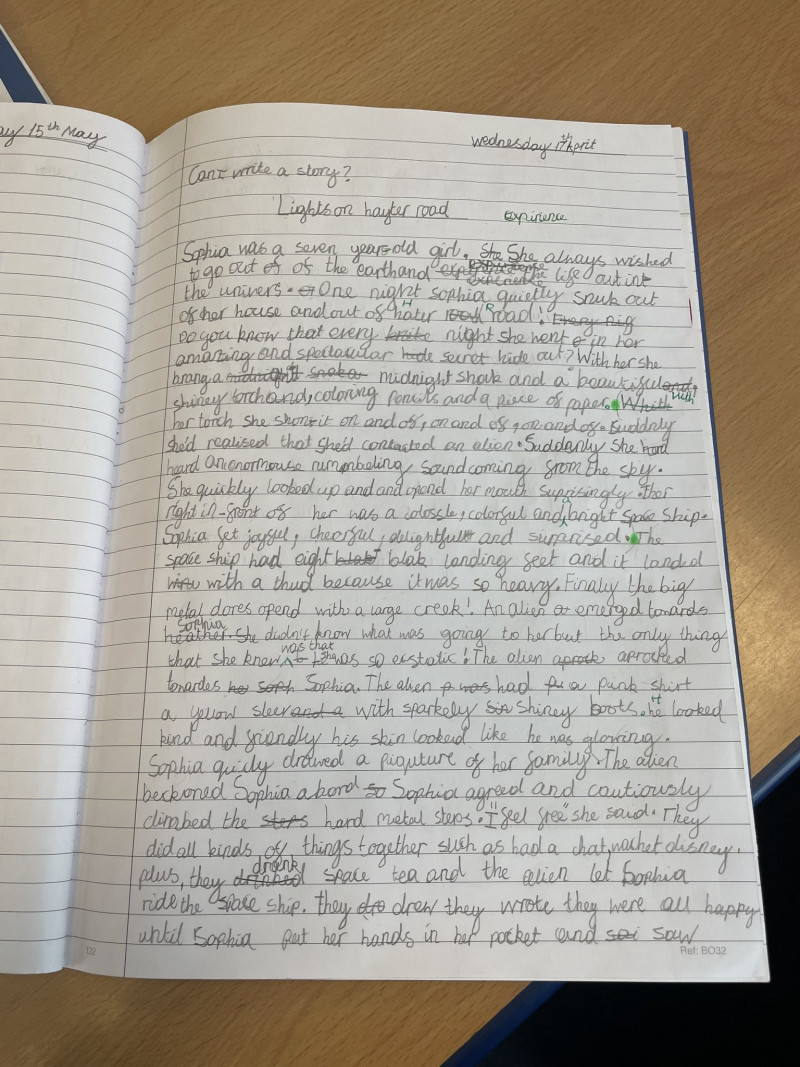 ay 15th May
Wednesday 17th April
Can I write a story?
Lights on hayter road
Expirience
Sophia was a seven years old girl. She She always wished
to go out of of the earth and experience the life out int
the univers. One night sophia quietly snuk out
of her house and out of Hater Road! Every nig
Do you know that every night she went in her
amazing and spectacular hide secret hide out? With her she
brang a midnight snaka midnight snak and a beautiful and,
shiney torch and, coloring pencils and a piece of paper. Whith with
her torch she shon it on and of, on and of, on and of. Suddnly
she'd realised that she'd contacted an alien. Suddenly she hard
heard an enormouse rumnbeling sound coming from the sky.
She quickly looked up and and opend her mouth suprisingly. ther
right in-front of her was a colossle, colorful and, bright space ship.
Sophia felt joyful, cheerful, delightfull and surprised. The
space ship had eight blak landing feet and it landed
with a thud because it was so heavy. Finaly the big
metal dores opend with a large creek! An alien emerged towards
Sophia
heather. She didn't know what was going to her but the only thing
was that
that she knew she was so ecstatic! The alien aproch aproched
towardes Sophia. The alien was had a punk shirt
a yellow sleev and a with sparkely shiney boots. He looked
kind and friendly his skin looked like he was glowing.
Sophia quicly drawed a piquture of her family. The alien
beckoned Sophia abord so Sophia agreed and cautiously
climbed the steps hard metal steps. "I feel free" she said. They
did all kinds of things together such as had a chat, wachet disney.
drank
plus, they drinked space tea and the alien let Sophia
ride the space ship. they dro drew they wrote they were all happy
until Sophia put her hands in her pocket and sai saw
122
Ref: BO32